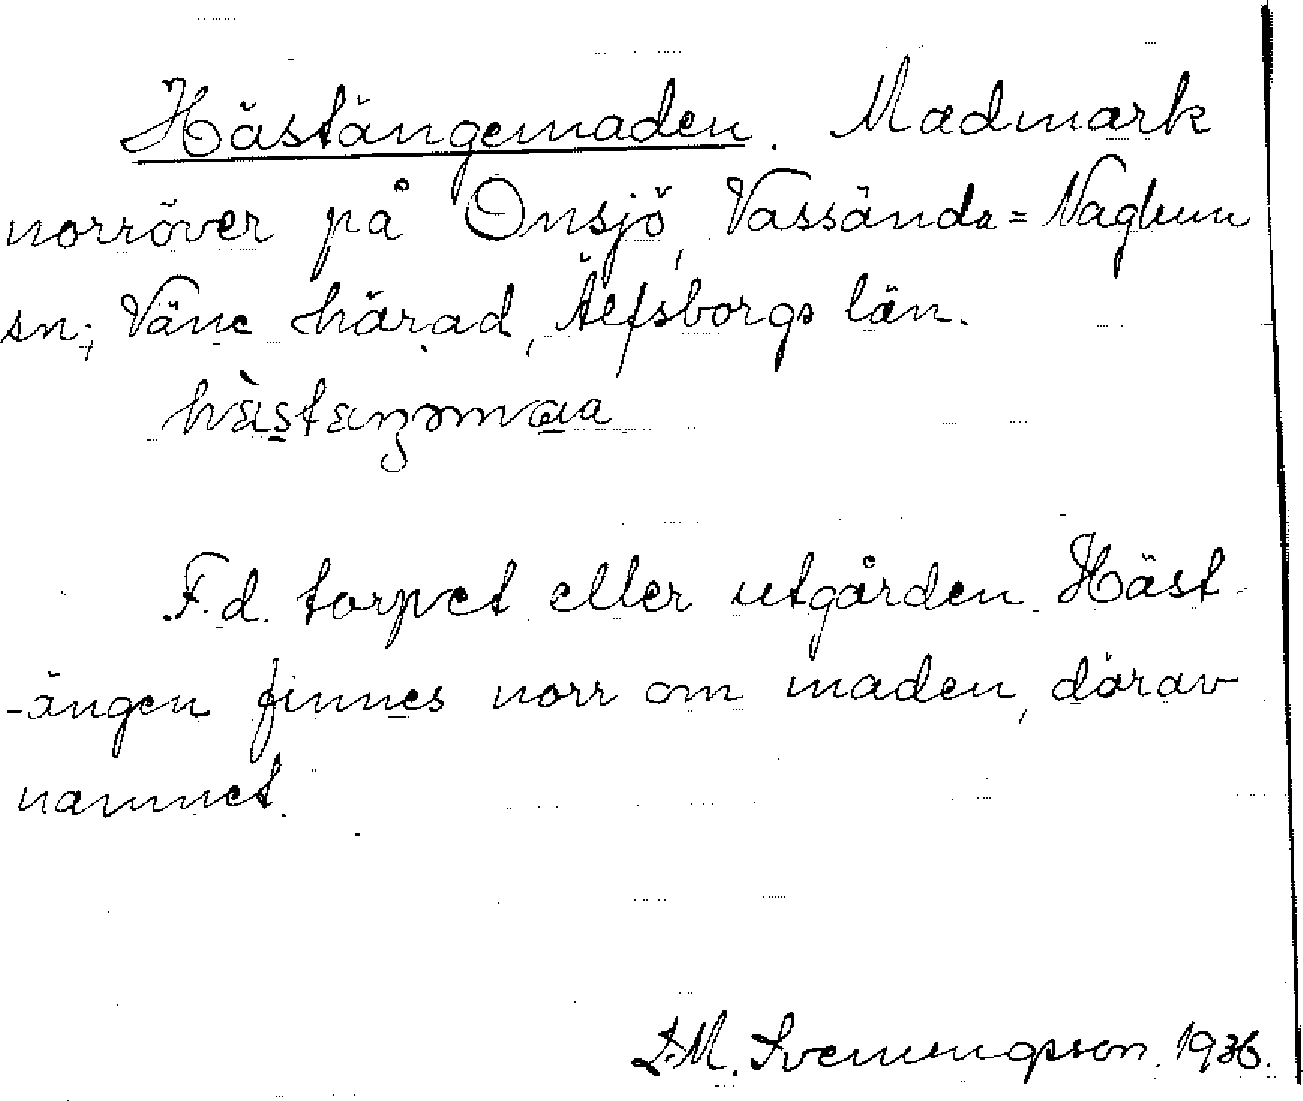 Hästängemaden. Madmark
norröver på Onsjö, Vassända=Naglum
sn; Väne härad, Älfsborgs län.
hàstaŋəmaa
F.d. torpet eller utgården Häst-
-ängen finnes norr om maden, därav
namnet.
Svenungsson. 1936.